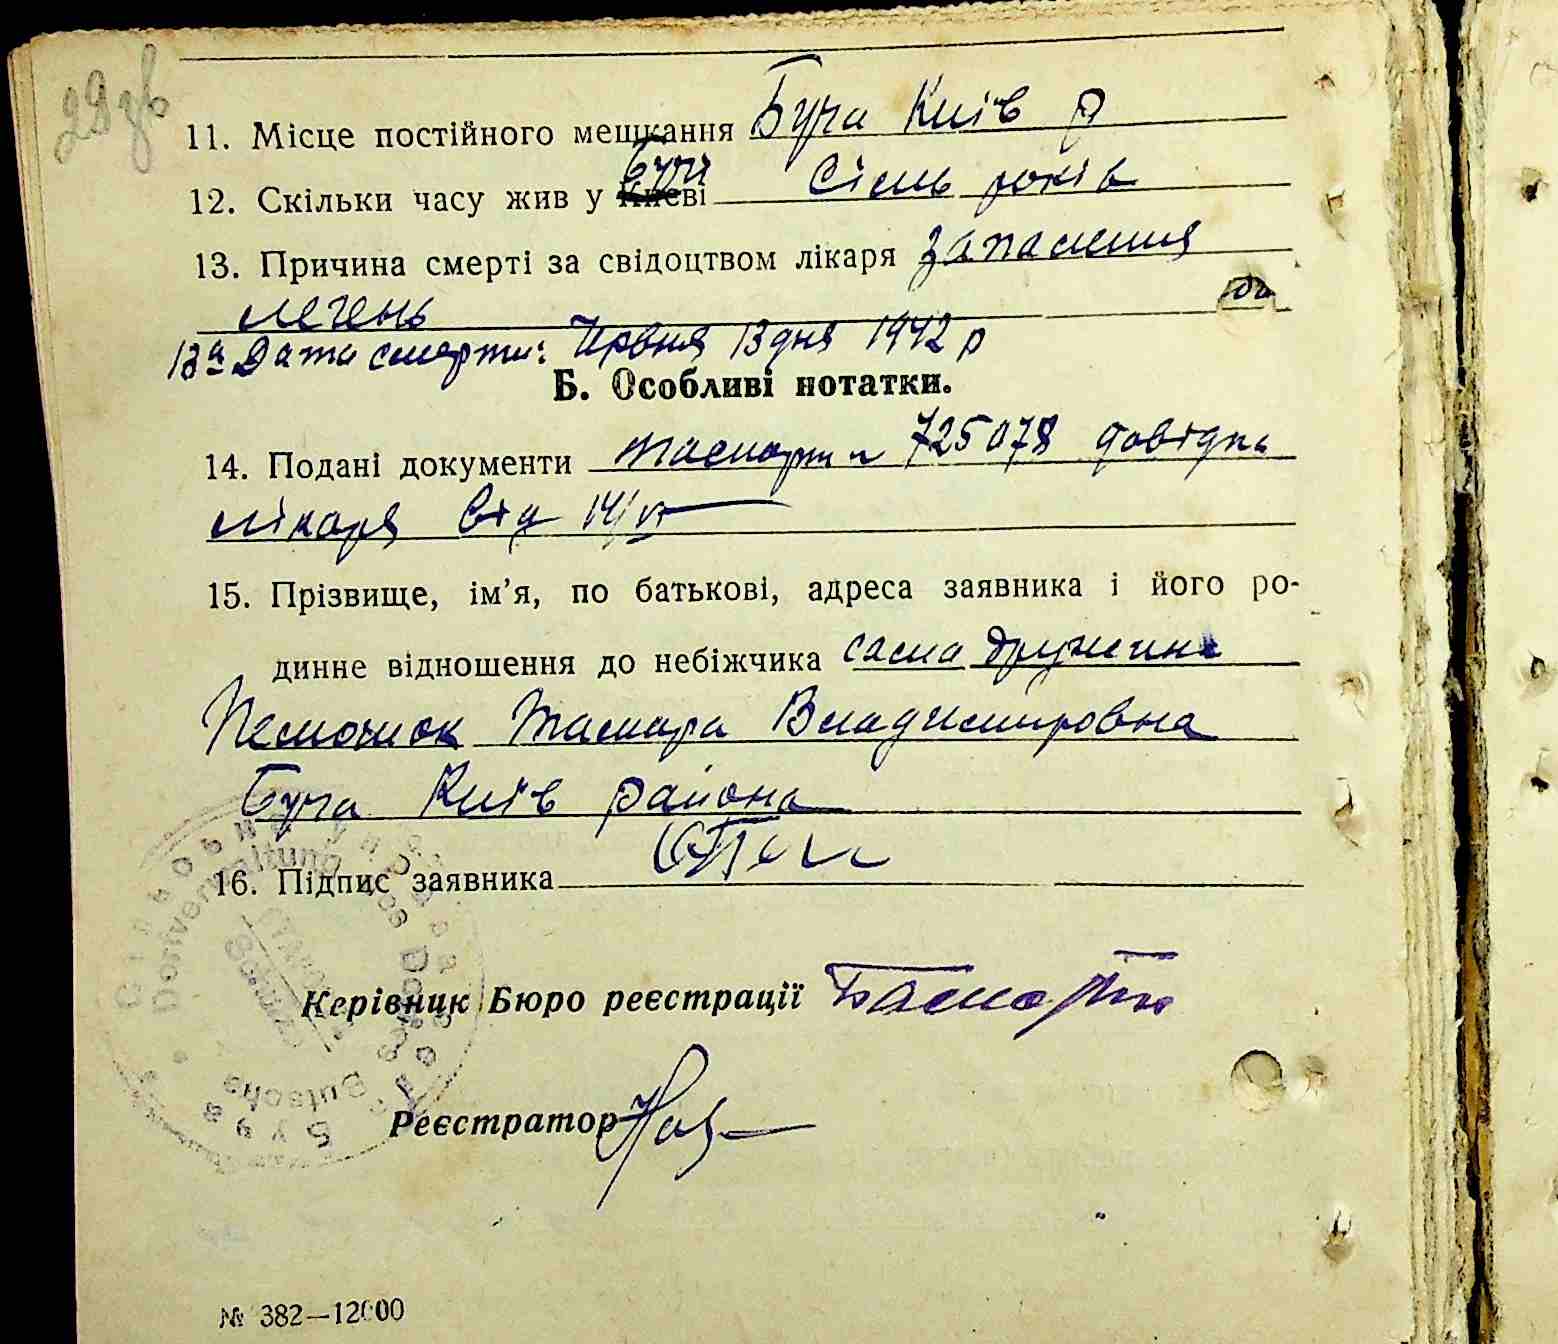 29 зв
11. Місце постійного мешкання Буча Київ р
12. Скільки часу жив у Бучі Києві Сім років
13. Причина смерті за свідоцтвом лікаря запалення
легень
13а Дата смерти: Червня 13 дня 1942 р
Б. Особливі нотатки.
14. Подані документи паспорт 725078 довідка
лікаря від 14/VI
15. Прізвище, ім’я, по батькові, адреса заявника і його ро-
динне відношення до небіжчика сама дружина
Тамара Владимировна
Буча Київ района
16. Підпис заявника
Керівник Бюро реєстрації
Реєстратор
№ 382—12000